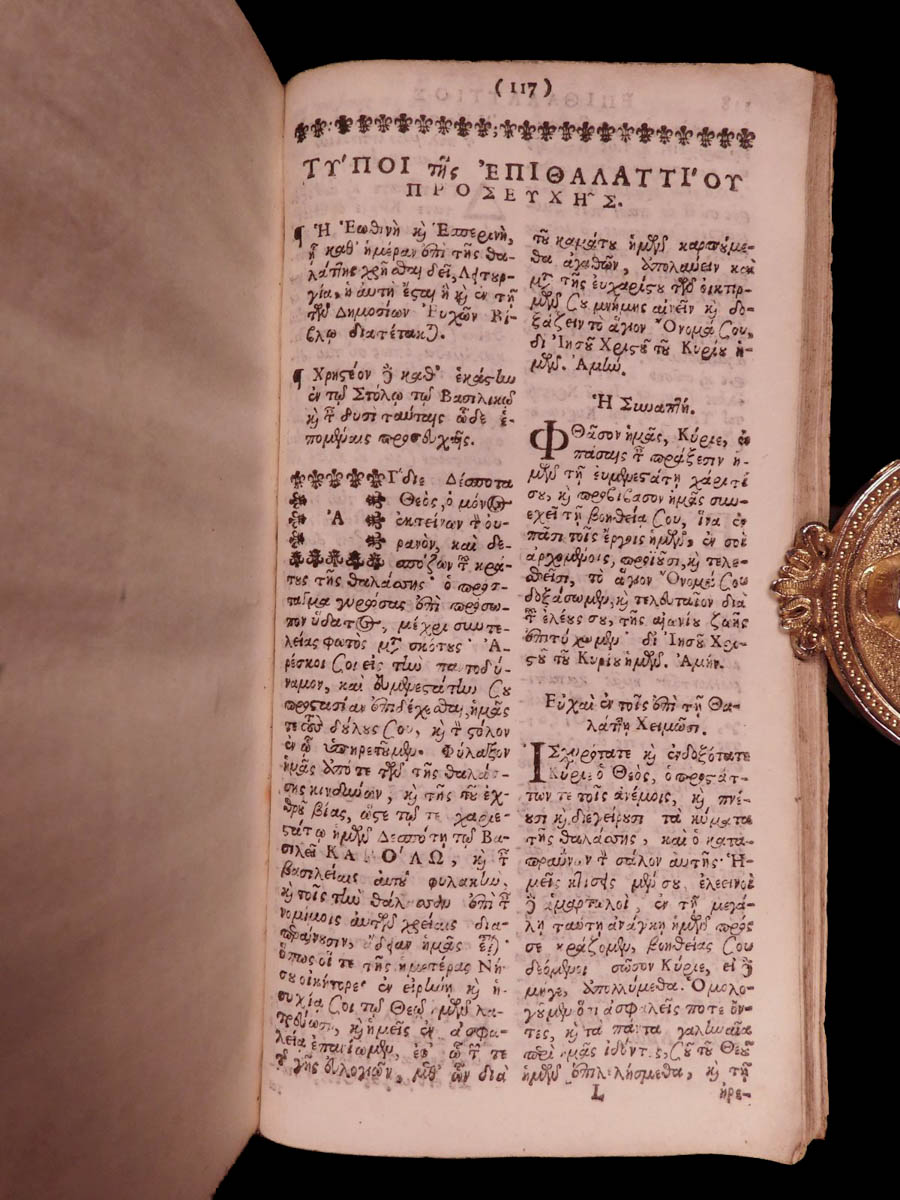 ( 117 )
ΤΥ'ΠΟΙ τῆς ἘΠΙΘΑΛΑΤΤΙ'ΟΥ
ΠΡΟΣΕΥΧΗ͂Σ.
¶ Ἡ Ἑωθινὴ ϗ Ἑσπερινὴ,
ᾗ καθ' ἡμέραν ἐπὶ τῆς θα-
λάττης χρῆσθαι δεῖ, Λῃτυρ-
γία, ἡ αὐτὴ ἔςαι ἣ ϗ ἐν τῇ
τῶν Δημοσίων Εὐχῶν Βί-
βλῳ διατέτακ).
¶ Χρηςέον ἢ καθ' ἑκάςην
ἐν τῷ Στόλῳ τῷ Βασιλικῷ
ϗ τ δυσὶ ταύταις ὧδε ἑ-
πομέναις προσευχαῖς.
Ἀΐδιε Δέσποτα
Θεὸς, ὁ μόνος
ἐκτείνων τ ȣ-
ρανὸν, καὶ δε-
σπόζων τ κρά-
τȣς τῆς θαλάσσης· ὁ πρός-
ταγμα γυρώσας ἐπὶ πρόσω-
πον ὕδατος, μέχρι συντε-
λείας φωτὸς μετὰ σκότȣς· Ἀ-
ρέσκοι Σοι εἰς τὴν παντοδύ-
ναμον, καὶ εὐμενεςάτην Σȣ
προςασίαν ἐπιδέχεσθαι ἡμᾶς
τε τȣ̀ς δȣ́λȣς Σȣ, ϗ τ ςόλον
ἐν ᾧ ὑπηρετȣ͂μεν. Φύλαξον
ἡμᾶς ἀπό τε τῶν τῆς θαλάσ-
σης κινδύνων, ϗ τῆς τȣ͂ ἐχ-
θρȣ͂ βίας, ὥςε τῷ τε χαριε-
ςάτῳ ἡμῶν Δεσπότῃ τῷ Βα-
σιλεῖ ΚΑΡΟ'ΛΩ, ϗ τ
βασιλείαις αὐτȣ͂ φυλακὴν,
ϗ τοῖς τὴν θάλασσαν ἐπὶ τ
νομίμοις αὐτῶν χρείαις δια-
περαίνȣσιν, ἄδειαν ἡμᾶς εἶ)·
ὅπως οἵ τε τῆς ἡμετέρας Νή-
σȣ οἰκήτορες ἐν εἰρήνῃ ϗ ἡ-
συχίᾳ Σοι τῷ Θεῷ ἡμῶν λα-
τρεύωσι, ϗ ἡμεῖς ἐν ἀσφα-
λείᾳ ἐπανίωμεν, ἐφ' ᾧ τ τε
τ γῆς εὐλογιῶν, μεθ' ὧν διὰ
τȣ͂ καμάτȣ ἡμῶν καρπȣ́με-
θα ἀγαθῶν, ἀπολαύειν καὶ
μετὰ τῆς εὐχαρίςȣ τῶν οἰκτιρ-
μῶν Σȣ μνήμης αἰνεῖν ϗ δο-
ξάζειν τὸ ἅγιον Ὄνομά Σου,
δι' Ἰησȣ͂ Χριςȣ͂ τȣ͂ Κυρίȣ ἡ-
μῶν. Ἀμήν.
Ἡ Συναπτή.
ΦΘάσον ἡμᾶς, Κύριε, ἐν
πάσαις τ πράξεσιν ἡ-
μῶν τῇ εὐμενεςάτῃ χάριτί
σȣ, ϗ προβίβασον ἡμᾶς συν-
εχεῖ τῇ βοηθείᾳ Σȣ, ἵνα ἐν
πᾶσι τοῖς ἔργοις ἡμῶν, ἐν σοὶ
ἀρχομένοις, προϊȣ͂σι, ϗ τελε-
σθεῖσι, τὸ ἅγιον Ὄνομά Σου
δοξάσωμεν, ϗ τελευταῖον διὰ
τ ἐλέȣς σȣ, τῆς αἰωνίȣ ζωῆς
ἐπιτύχωμεν· δι' Ἰησȣ͂ Χρι-
ςȣ͂ τȣ͂ Κυρίȣ ἡμῶν. Ἀμήν.
Εὐχαὶ ἐν τοῖς ἐπὶ τῇ Θα-
λάττῃ Χειμῶσι.
ἸΣχυρότατε ϗ ἐνδοξότατε
Κύριε ὁ Θεὸς, ὁ προςάτ-
των τε τοῖς ἀνέμοις, ϗ πνέ-
ȣσι ϗ διεγείρȣσι τὰ κύματα
τῆς θαλάσσης, καὶ ὁ κατα-
πραΰνων τ σάλον αὐτῆς· Ἡ-
μεῖς κτίσις μέν σȣ, ἐλεεινοὶ
ἢ ἁμαρτωλοὶ, ἐν τῇ μεγά-
λῃ ταύτῃ ἀνάγκῃ ἡμῶν πρός
σε κράζομεν, βοηθείας Σȣ
δεόμενοι· σῶσον Κύριε, εἰ ἢ
μήγε, ἀπολλύμεθα. Ὁμολο-
γȣ͂μεν ὅτι ἀσφαλεῖς ποτε ὄν-
τες, ϗ τὰ πάντα γαληναῖα
περὶ ἡμᾶς ἰδόντες, Σȣ͂ τȣ͂ Θεȣ͂
ἡμῶν ἐπιλελήσμεθα, ϗ τῇ
L ἠρε-